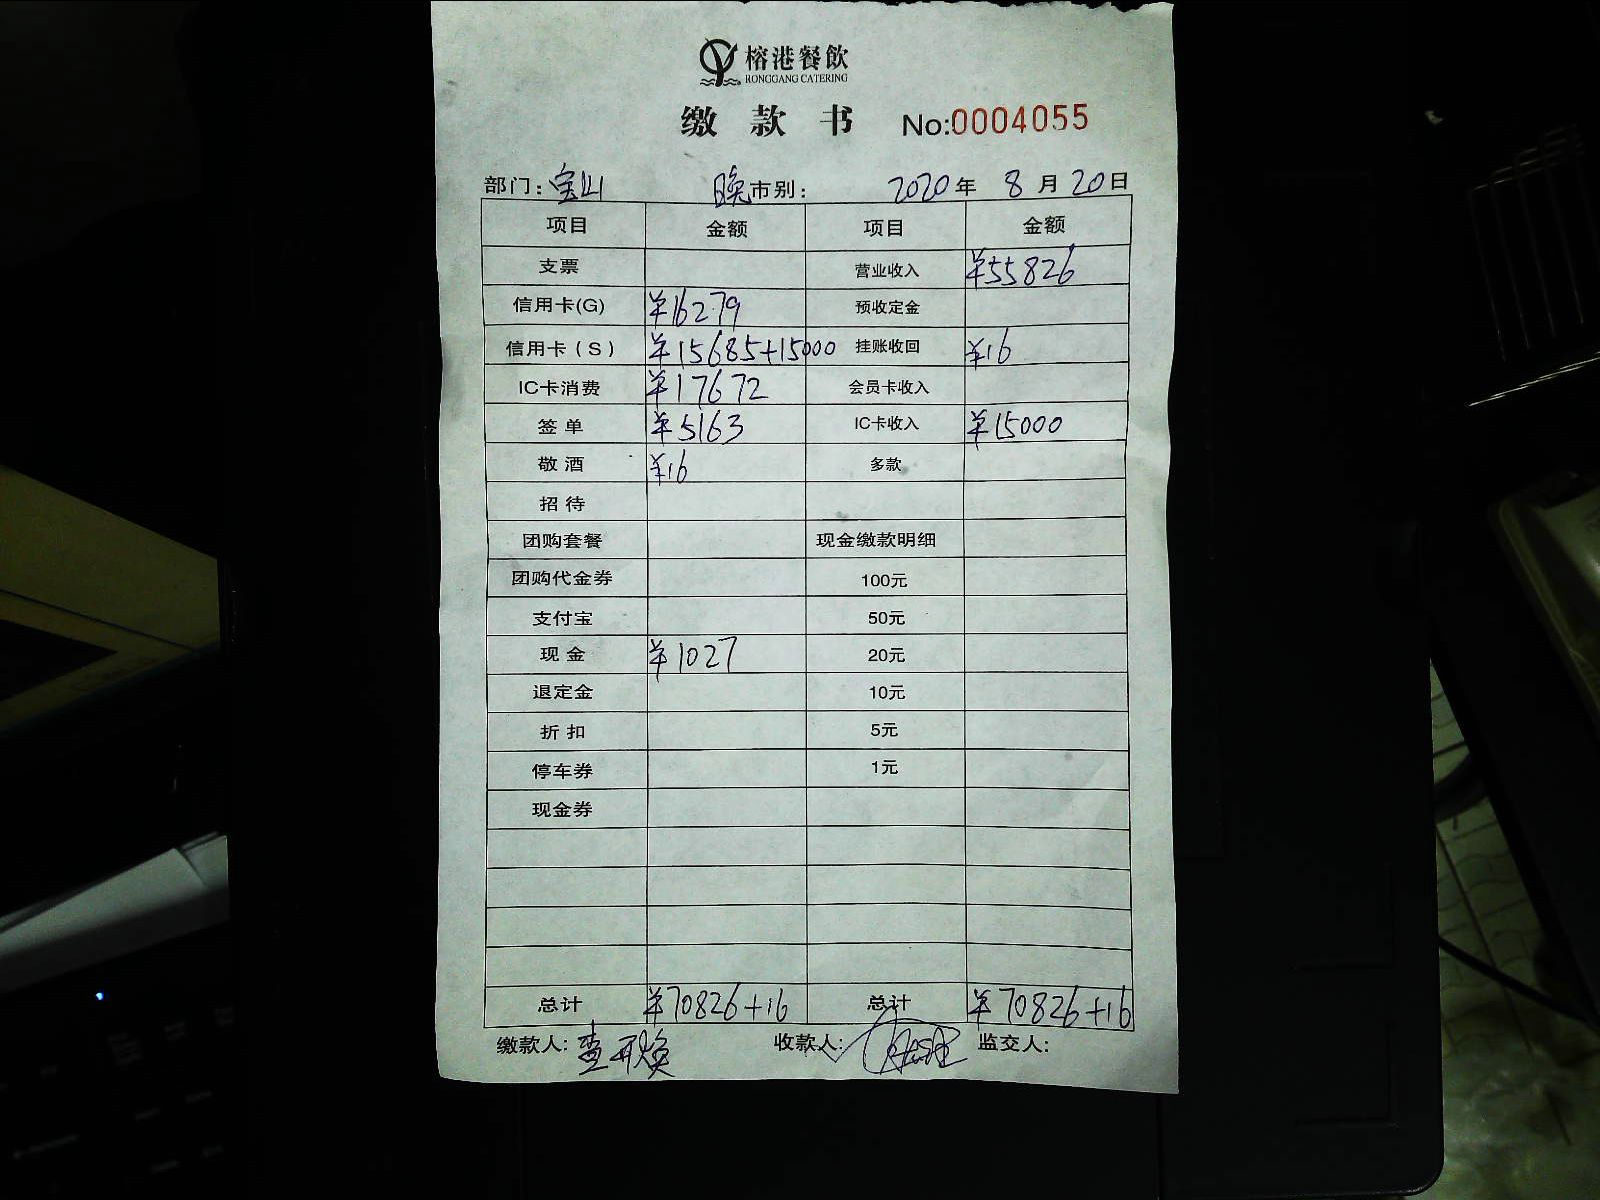 榕港餐飲
RONGGANG CATERING
缴 款 书 No:0004055
部门: 宝山 晚市别: 2020年 8月20日
项目 金额 项目 金额
支票 营业收入 ¥55826
信用卡(G) ¥16279 预收定金
信用卡(S) ¥15685+15000 挂账收回 ¥16
IC卡消费 ¥17672 会员卡收入
签单 ¥5163 IC卡收入 ¥15000
敬酒 ¥16 多款
招待
团购套餐 现金缴款明细
团购代金券 100元
支付宝 50元
现金 ¥1027 20元
退定金 10元
折扣 5元
停车券 1元
现金券
总计 ¥70826+16 总计 ¥70826+16
缴款人: 收款人: 监交人: